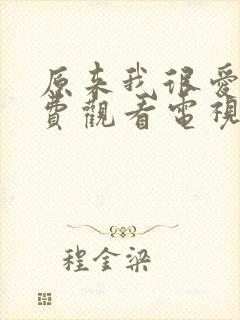 原来我很爱
费觀看電視
程金梁